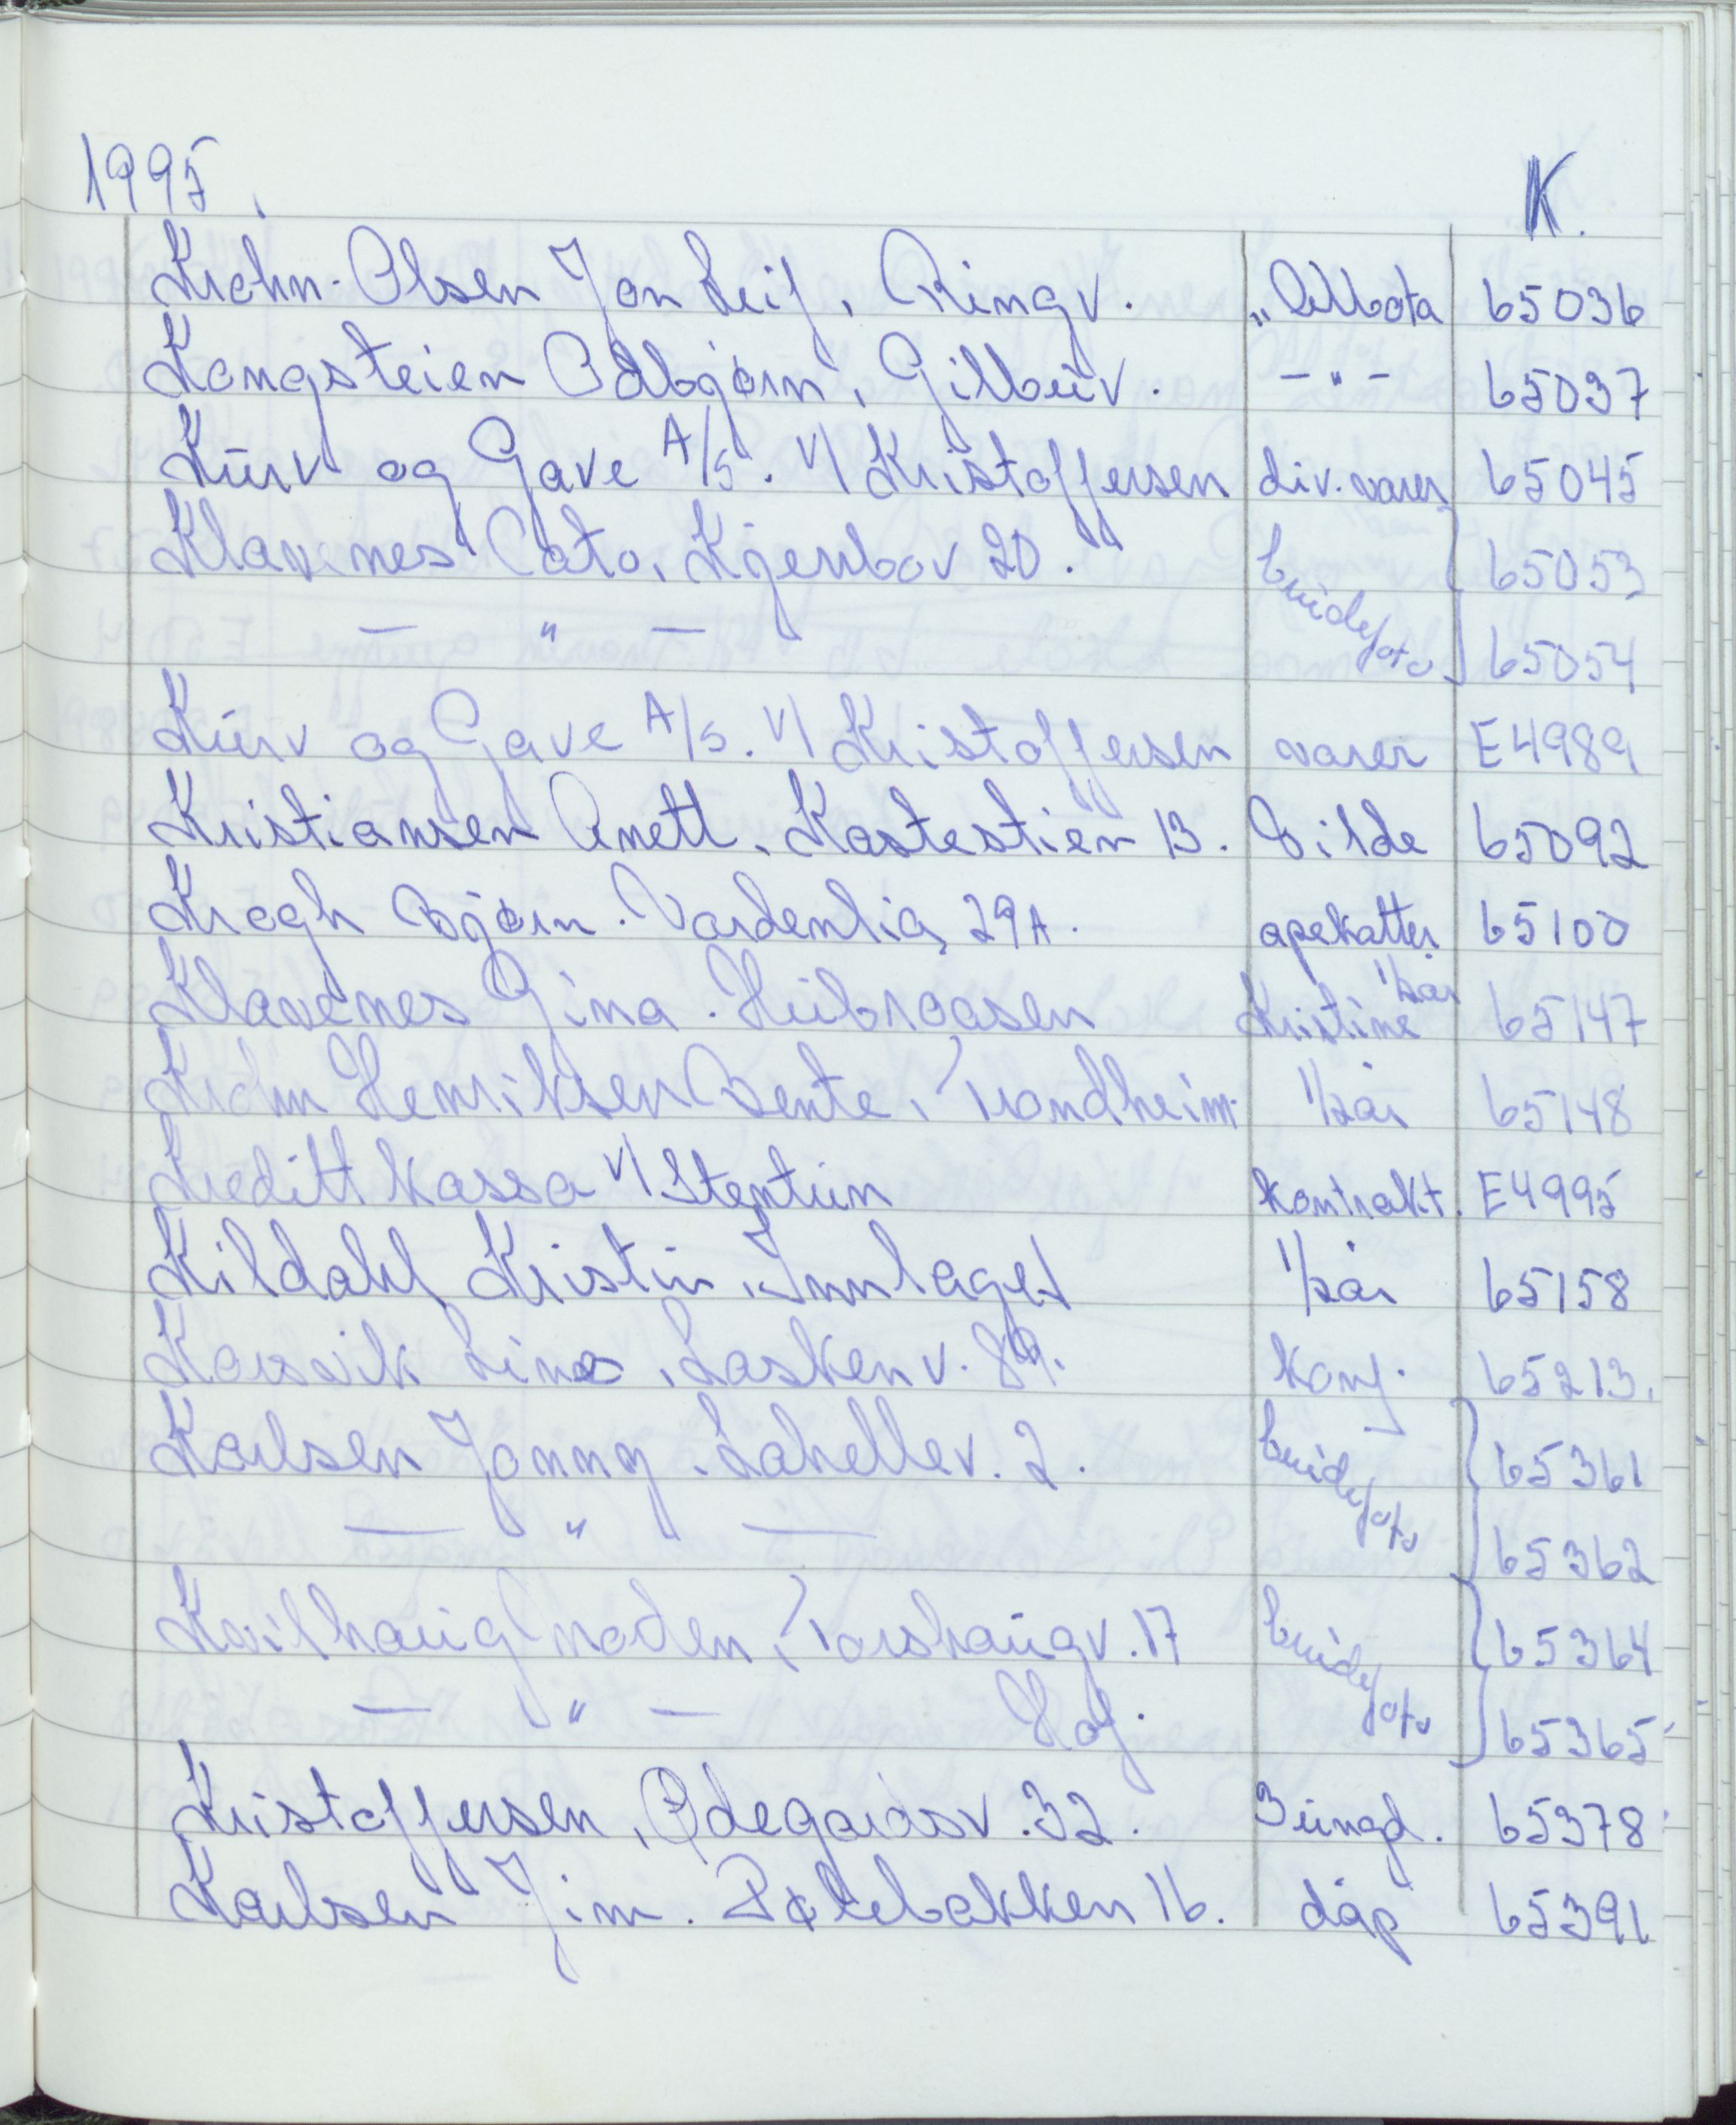 1995.
K.
Krohn-Olsen Jon Leif, Ringv. „Ållbota 65036
Kongsteien Oddbjørn, Gilbuv. -"- 65037
Kurv og Gave A/S. v/ Kristoffersen div. varer 65045
Klavenes Cato, Kjerrbov 20. brudefoto 65053
— " — 65054
Kurv og Gave A/S. v/ Kristoffersen varer E4989
Kristiansen Anett. Kastestien 13. Bilde 65092
Krogh Bjørn. Vardenlia, 29A. apekatter 65100
Klavenes Gina. Huibroåsen Kristine 1/2år 65147
Krohn Henriksen Bente, Trondheim 1/2år 65148
Kreditt kassa v/ Stentun kontrakt. E4995
Kildahl Kristin, Innlaget 1/2år 65158
Korsvik Line, Laskenv. 89. konf. 65213.
Karlsen Jonny. Lahellev. 2. brudefoto 65361
— " — 65362
Kvilhaug Noden, Torshaugv. 17 brudefoto 65364
— " — Hof. 65365
Kristoffersen, Ødegårdsv. 32. 3 ungd. 65378
Karlsen Jim. Pølebakken 16. dåp 65391